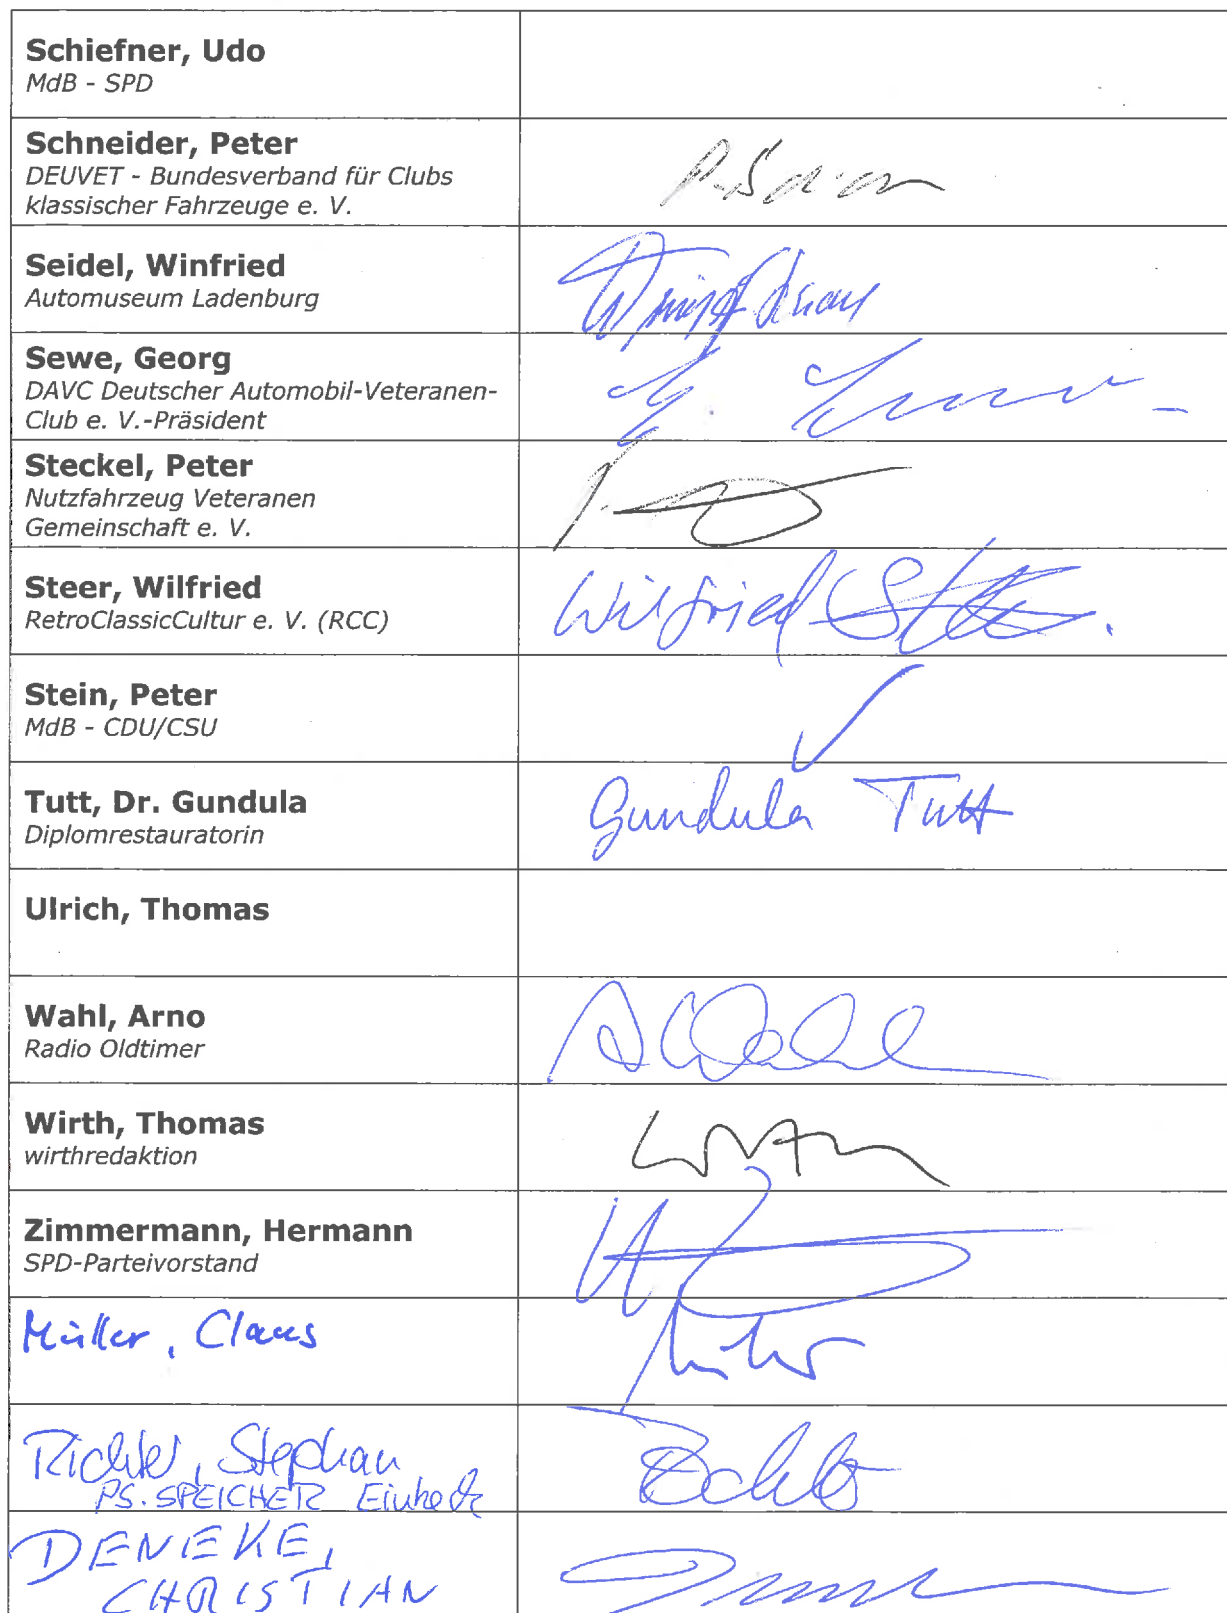 Schiefner, Udo
MdB - SPD
Schneider, Peter
DEUVET - Bundesverband für Clubs
klassischer Fahrzeuge e. V.
Seidel, Winfried
Automuseum Ladenburg
Sewe, Georg
DAVC Deutscher Automobil-Veteranen-
Club e. V.-Präsident
Steckel, Peter
Nutzfahrzeug Veteranen
Gemeinschaft e. V.
Steer, Wilfried
RetroClassicCultur e. V. (RCC)
Wilfried
Stein, Peter
MdB - CDU/CSU
Tutt, Dr. Gundula
Diplomrestauratorin
Gundula Tutt
Ulrich, Thomas
Wahl, Arno
Radio Oldtimer
AWahl
Wirth, Thomas
wirthredaktion
Zimmermann, Hermann
SPD-Parteivorstand
Müller, Claus
Richter, Stephan
PS.SPEICHER Einbeck
DENEKE,
CHRISTIAN